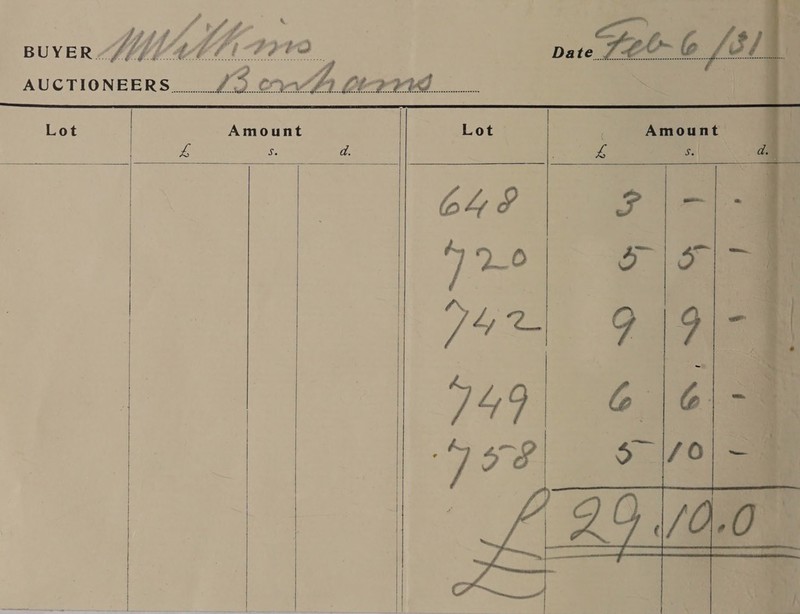 BUYER MWilkins Date Feb 6/31
AUCTIONEERS Bonhams
Lot Amount Lot Amount
£ s. d. £ s. d.
648 3 - -
720 5 5 -
742 9 9 -
749 6 6 -
758 5 10 -
£ 29.10.0